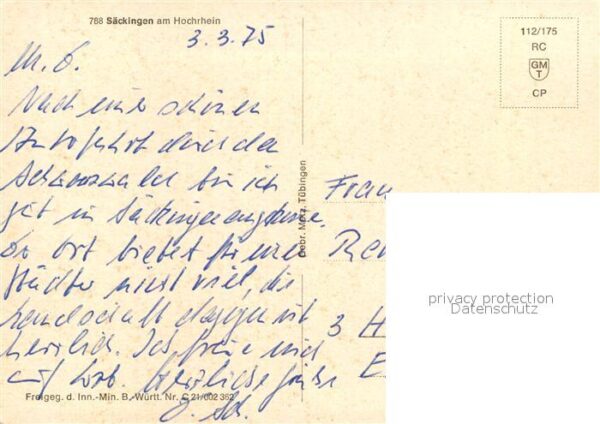 788 Säckingen am Hochrhein
3.3.75
112/175
RC
GM
T
CP
M. G.
Nach einer schönen
Autofahrt durch den
Schwarzwald bin ich
gut in Säckingen angekomm.
Der Ort bietet für uns
Städter nicht viel, die
Landschaft dagegen ist
herrlich. Ich freue mich
auf Herzliche Grüße
Gebr. Metz, Tübingen
Frau
3 H
E
Freigeg. d. Inn.-Min. B.-Württ. Nr. C 21/602 362
privacy protection
Datenschutz